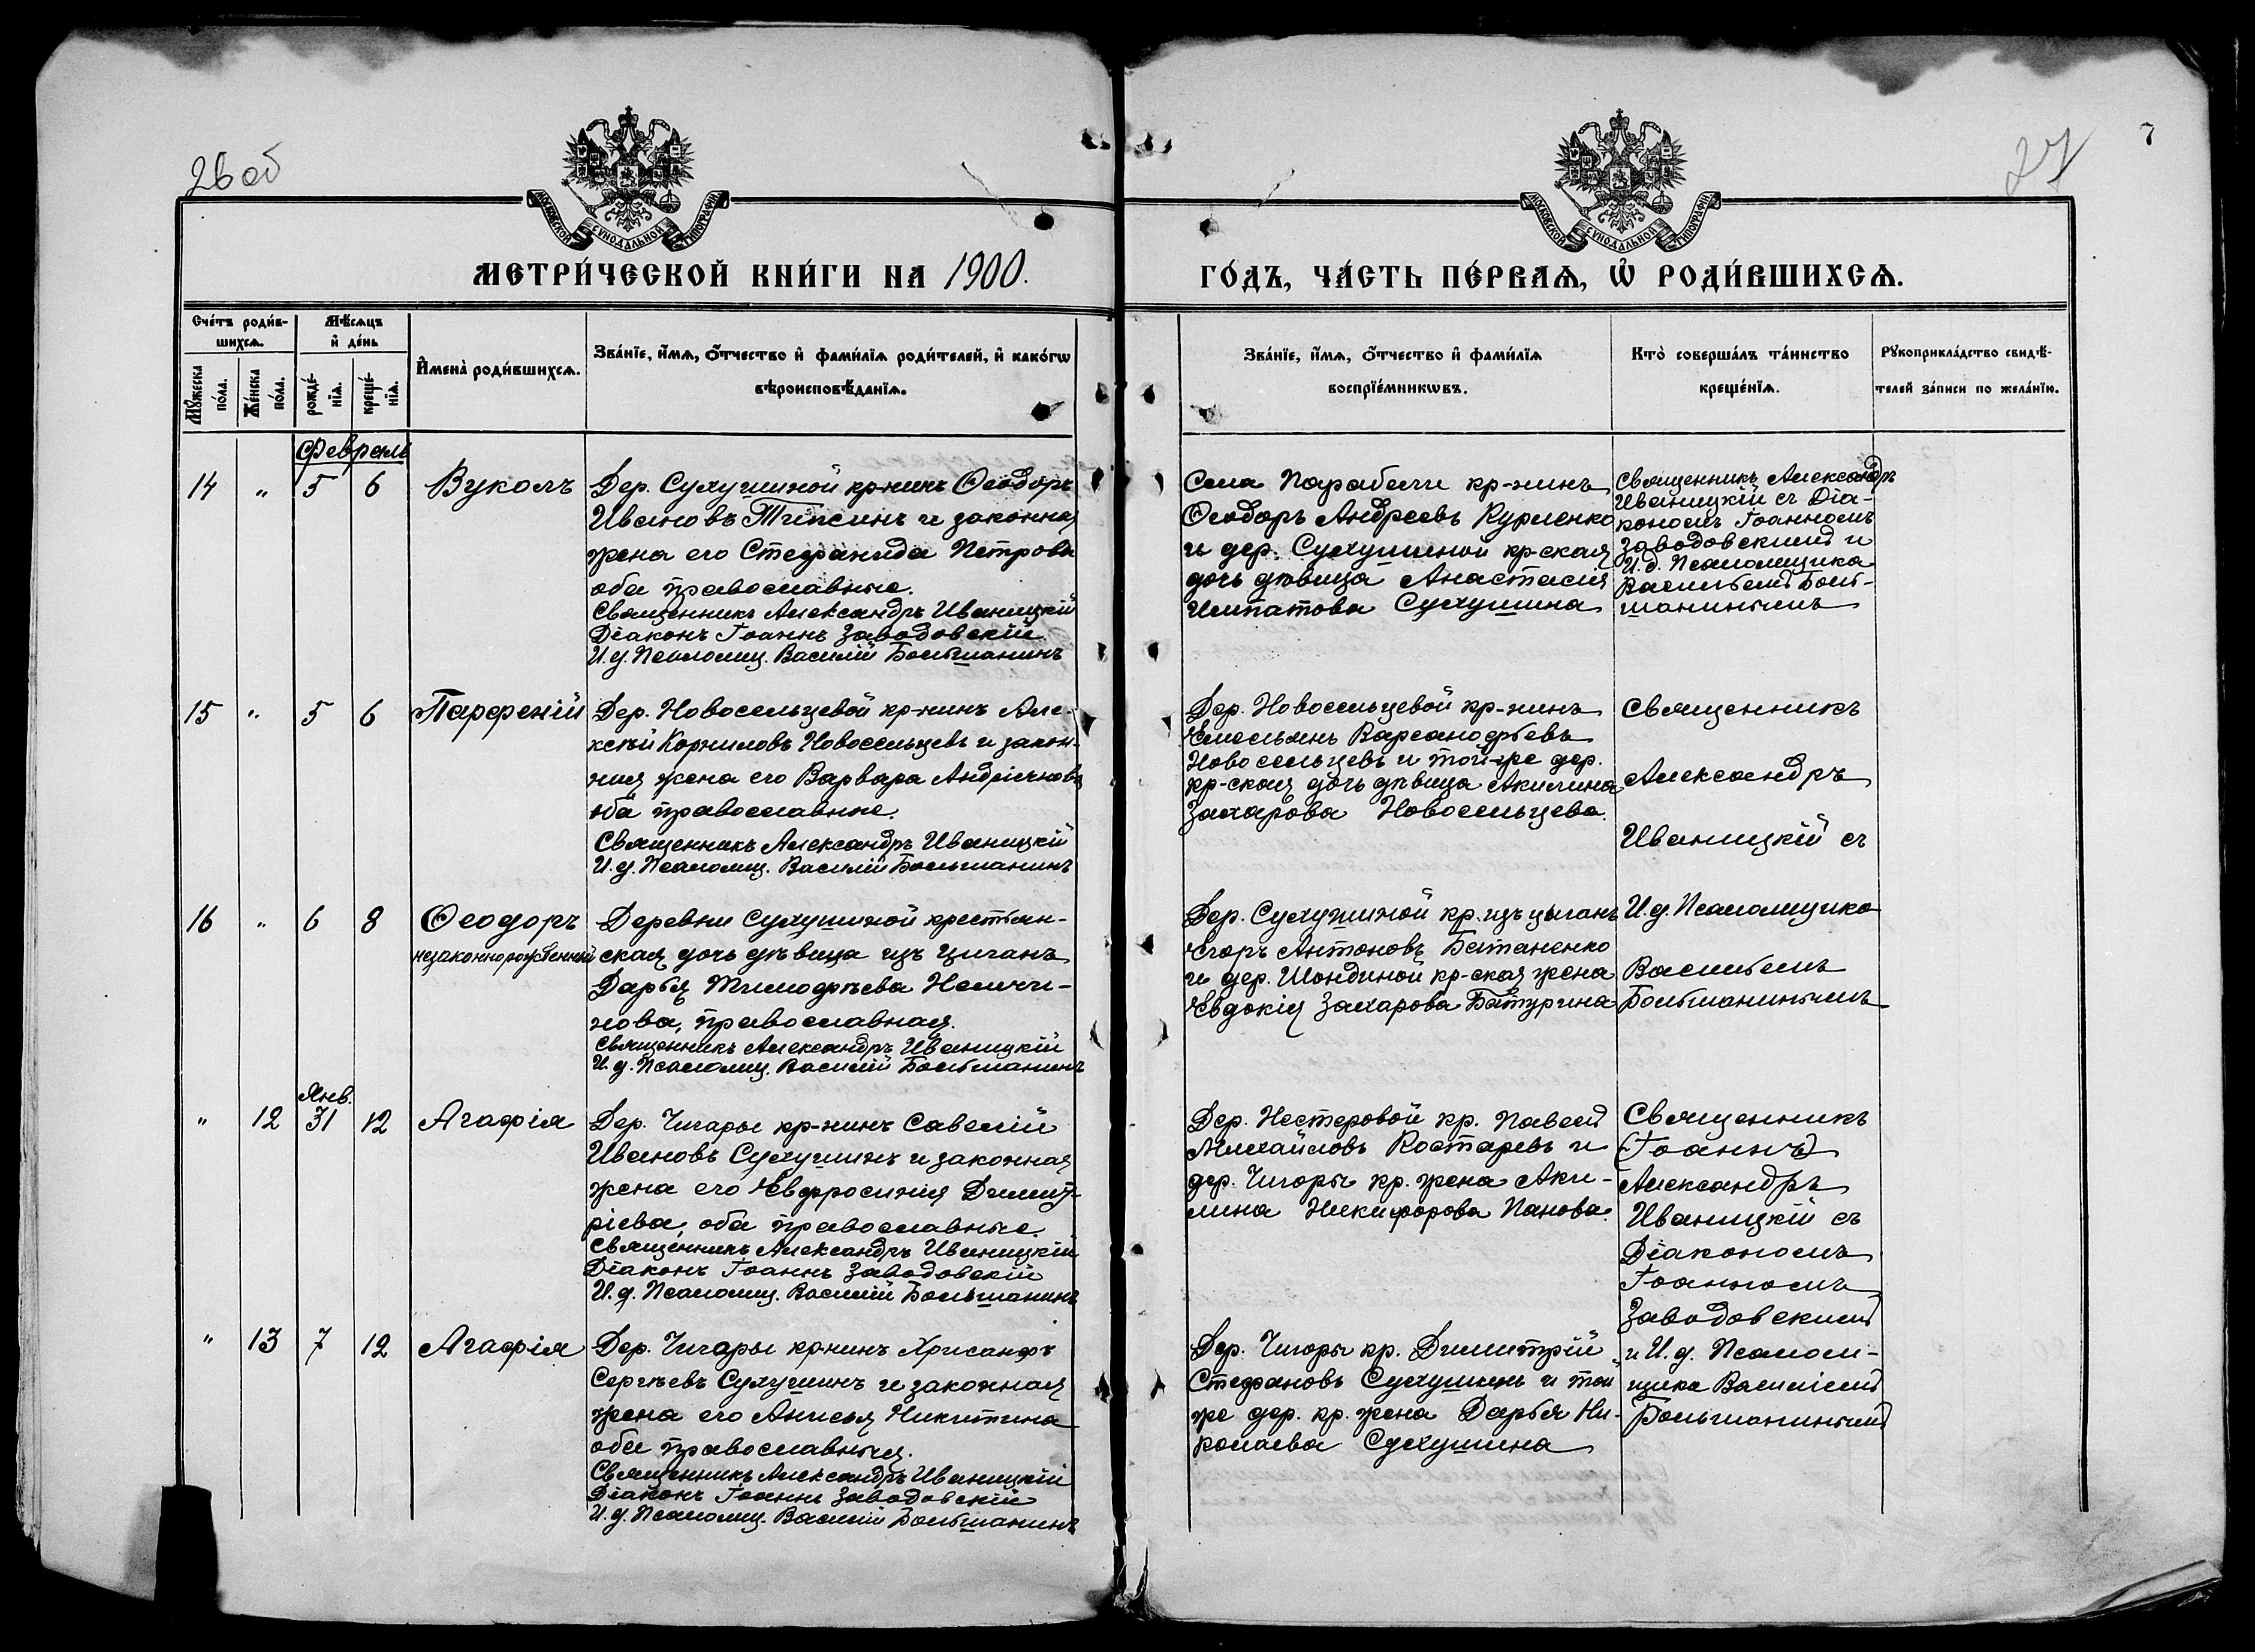 26 об
27
7
МОСКОВСКОЙ СѴНОДАЛЬНОЙ ТИПОГРАФІИ
МОСКОВСКОЙ СѴНОДАЛЬНОЙ ТИПОГРАФІИ
МЕТРИ́ЧЕСКОЙ КНИ́ГИ НА 1900.
ГО́ДЪ, ЧА́СТЬ ПЕ́РВАѦ, Ѡ҆ РОДИ́ВШИХСѦ.
Сче́тъ роди́в-
шихсѧ.
Мѣ́сѧцъ
и҆ де́нь
Мꙋ́жеска
по́ла.
Же́нска
по́ла.
рожде́-
нїѧ.
креще́-
нїѧ.
И҆мена̀ роди́вшихсѧ.
Зва́нїе, и҆́мѧ, ѻ҆́тчество и҆ фами́лїѧ роди́телей, и҆ како́гѡ
вѣроисповѣ́данїѧ.
Зва́нїе, и҆́мѧ, ѻ҆́тчество и҆ фами́лїѧ
воспрїе́мникѡвъ.
Кто̀ соверша́лъ та́инство
креще́нїѧ.
Рꙋкоприкла́дство свидѣ́-
телей за́писи по жела́нїю.
Февраль
14 " 5 6 Вуколъ
Дер. Сухушиной кр-нинъ Ѳеодоръ
Ивановъ Типсинъ и законная
жена его Стефанида Петрова
оба православные.
Священникъ Александръ Иваницкій
Діаконъ Іоаннъ Заводовскій
И. д. Псаломщ. Василій Большанинъ
Села Парабели кр-нинъ
Ѳеодоръ Андреевъ Курленко
и дер. Сухушиной кр-ская
дочь дѣвица Анастасія
Ипатова Сухушина
Священникъ Александръ
Иваницкій съ Діа-
кономъ Іоанномъ
Заводовскимъ и
И. д. Псаломщика
Васильемъ Боль-
шанинымъ
15 " 5 6 Парфеній
Дер. Новосельцевой кр-нинъ Але-
ксѣй Корниловъ Новосельцевъ и закон-
ная жена его Варвара Андріянова
оба православные.
Священникъ Александръ Иваницкій
И. д. Псаломщ. Василій Большанинъ
Дер. Новосельцевой кр-нинъ
Емельянъ Варсанофьевъ
Новосельцевъ и той-же дер.
кр-ская дочь дѣвица Акилина
Захарова Новосельцева.
Священникъ
Александръ
Иваницкій съ
16 " 6 8 Ѳеодоръ
незаконнорожденный
Деревни Сухушиной крестьян-
ская дочь дѣвица изъ цыганъ
Дарья Тимофѣева Немчи-
нова, православная.
Священникъ Александръ Иваницкій
И. д. Псаломщ. Василій Большанинъ
Дер. Сухушиной кр. изъ цыганъ
Егоръ Антоновъ Батаненко
и дер. Шондиной кр-ская жена
Евдокія Захарова Батурина
И. д. Псаломщика
Васильемъ
Большанинымъ
Янв.
" 12 31 12 Агафія
Дер. Чигары кр-нинъ Савелій
Ивановъ Сухушинъ и законная
жена его Евфросинія Димит-
ріева, оба православные.
Священникъ Александръ Иваницкій
Діаконъ Іоаннъ Заводовскій
И. д. Псаломщ. Василій Большанинъ
Дер. Нестеровой кр. Павелъ
Михайловъ Костаревъ и
дер. Чигоры кр. жена Аки-
лина Никифорова Панова.
Священникъ
(Іоаннъ)
Александръ
Иваницкій съ
Діакономъ
Іоанномъ
Заводовскимъ
" 13 7 12 Агафія
Дер. Чигары кр-нинъ Хрисанфъ
Сергѣевъ Сухушинъ и законная
жена его Анисья Никитина
оба православныя.
Священникъ Александръ Иваницкій
Діаконъ Іоаннъ Заводовскій
И. д. Псаломщ. Василій Большанинъ
Дер. Чигоры кр. Димитрій
Стефановъ Сухушинъ и той
же дер. кр. жена Дарья Ни-
колаева Сухушина
и И. д. Псалом-
щика Василіемъ
Большанинымъ